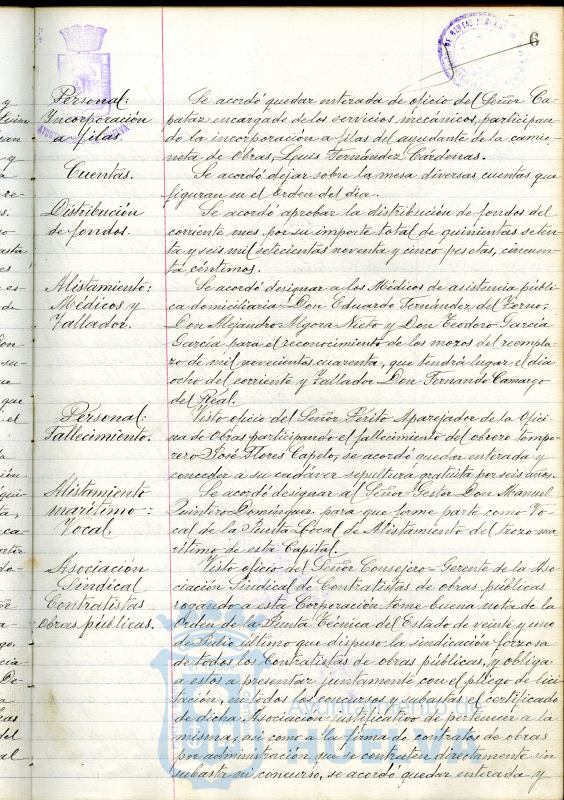 6
AYUNTAMIENTO DE HUELVA
Personal:
Yncorporación
a filas
Se acordó quedar enterada de oficio del Señor Ca-
pataz encargado de los servicios mecánicos, participan-
do la incorporación a filas del ayudante de la camio-
neta de Obras, Luis Fernández Cárdenas.
Cuentas.
Se acordó dejar sobre la mesa diversas cuentas que
figuran en el Orden del dia.
Distribución
de fondos.
Se acordó aprobar la distribución de fondos del
corriente mes por su importe total de quinientas seten-
ta y seis mil setecientas noventa y cinco pesetas, cincuen-
ta céntimos.
Alistamiento:
Médicos y
Tallador.
Se acordó designar a los Médicos de asistencia públi-
ca domiciliaria Don Eduardo Fernández del Torno,
Don Alejandro Algora Nieto y Don Teodoro García
García para el reconocimiento de los mozos del reempla-
zo de mil novecientos cuarenta, que tendrá lugar el dia
ocho del corriente y Tallador Don Fernando Camargo
del Real.
Personal:
Fallecimiento.
Visto oficio del Señor Périto Aparejador de la Ofici-
na de Obras participando el fallecimiento del obrero tempo-
rero José Flores Capelo, se acordó quedar enterada y
conceder a su cadáver sepultura gratuita por seis años.
Alistamiento
marítimo:
Vocal.
Se acordó designar al Señor Gestor Don Manuel
Quintero Domínguez para que forme parte como Vo-
cal de la Junta Local de Alistamiento del trozo ma-
rítimo de esta Capital.
Asociación
Sindical
Contratistas
obras públicas.
Visto oficio del Señor Consejero-Gerente de la Aso-
ciación Sindical de Contratistas de obras públicas
rogando a esta Corporación tome buena nota de la
Orden de la Junta Técnica del Estado de veinte y uno
de Julio último que dispuso la sindicación forzosa
de todos los Contratistas de obras públicas, y obliga
a estos a presentar juntamente con el pliego de lici-
tación, en todos los concursos y subastas el certificado
de dicha Asociación justificativo de pertenecer a la
misma, así como a la firma de contratos de obras
por administración que se contraten directamente sin
subasta ni concurso, se acordó quedar enterada y
Ayuntamiento de
HUELVA